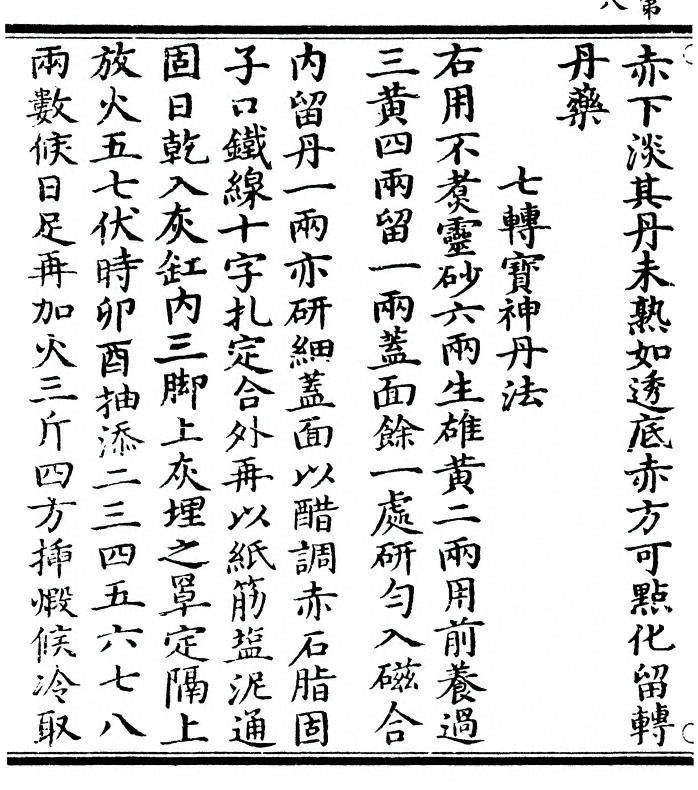 第
八
赤下淡其丹未熟如透底赤方可點化留轉
丹藥
七轉寶神丹法
右用不煑靈砂六兩生雄黃二兩用前養過
三黃四兩留一兩蓋面餘一處研勻入磁合
内留丹一兩亦研細蓋面以醋調赤石脂固
子口鐵線十字扎定合外再以紙筋盐泥通
固日乾入灰缸内三脚上灰埋之罩定隔上
放火五七伏時卯酉抽添二三四五六七八
兩數候日足再加火三斤四方揷煅候冷取